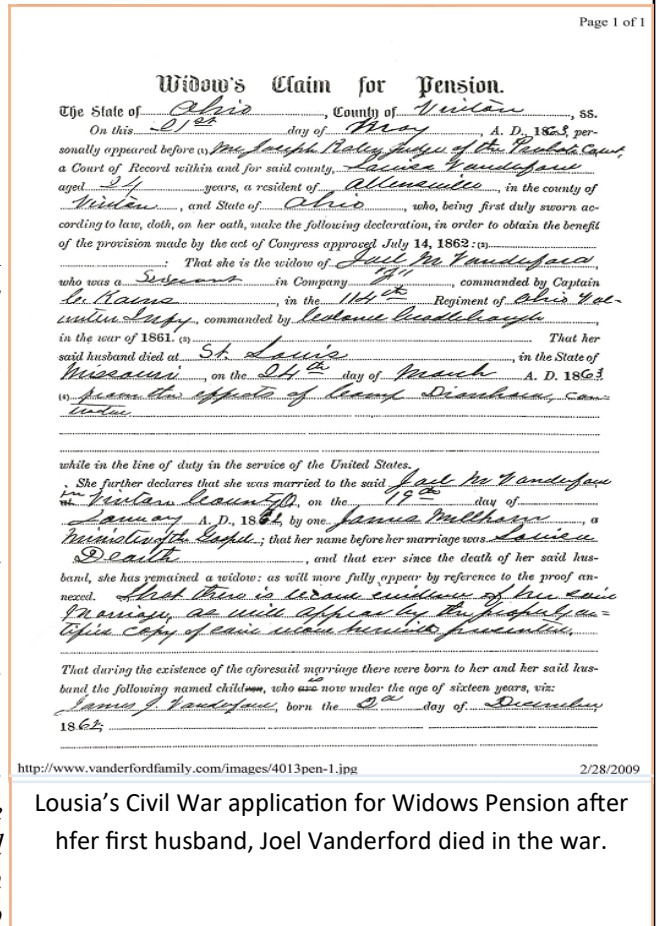 Page 1 of 1
Widow's Claim for Pension.
The State of Ohio, County of Vinton, ss.
On this 21st day of May, A. D., 1863, per-
sonally appeared before (1) Mr Joseph Judge of the Probate Court,
a Court of Record within and for said county, Louisa Vanderford
aged 24 years, a resident of Allensville, in the county of
Vinton, and State of Ohio, who, being first duly sworn ac-
cording to law, doth, on her oath, make the following declaration, in order to obtain the benefit
of the provision made by the act of Congress approved July 14, 1862: (2)
: That she is the widow of Joel M Vanderford,
who was a in Company, commanded by Captain
Kains, in the 114th Regiment of Ohio Vol-
unteer Infy, commanded by Colonel
in the war of 1861. (3) That her
said husband died at St. Louis, in the State of
Missouri, on the 24th day of March A. D. 1863
(4) from the effects of Camp Diarrhoea, con-
while in the line of duty in the service of the United States.
She further declares that she was married to the said Joel M Vanderford
in Vinton County O, on the 19th day of
January A. D., 1862, by one James Millhorn, a
Minister of the Gospel; that her name before her marriage was Louisa
, and that ever since the death of her said hus-
band, she has remained a widow: as will more fully appear by reference to the proof an-
nexed. That there is record evidence of her said
Marriage, as will appear by the properly
copy of presented.
That during the existence of the aforesaid marriage there were born to her and her said hus-
band the following named children, who are is now under the age of sixteen years, viz:
James J. Vanderford, born the 2d day of December
1862;
http://www.vanderfordfamily.com/images/4013pen-1.jpg 2/28/2009
Lousia's Civil War application for Widows Pension after
hfer first husband, Joel Vanderford died in the war.